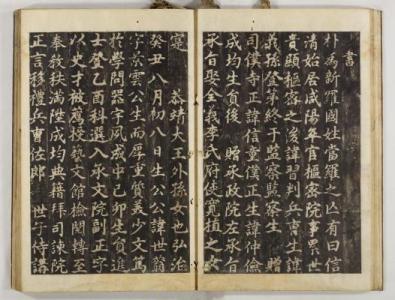 書
朴為新羅國姓當羅之亡有曰信
清始居咸陽年官樞密院事累世
貴顯樞密之後諱習判兵曹生諱
義孫登第終于監察監察生 贈
司僕寺正諱信童僕正生諱仲儉
成均生員後 贈承政院左承旨
承旨娶全義李氏府使寬植之女
寔 恭靖大王外孫女也弘治
癸丑八月初八日生公公諱世蓊
字景雲公生而厚重質美少文篤
於學問器宇夙成中己卯生員進
士登乙酉科選入承文院副正字
以史才被薦授藝文館檢閱轉至
奉教秩滿陞成均典籍拜司諫院
正言移禮兵曹佐郎 世子侍講